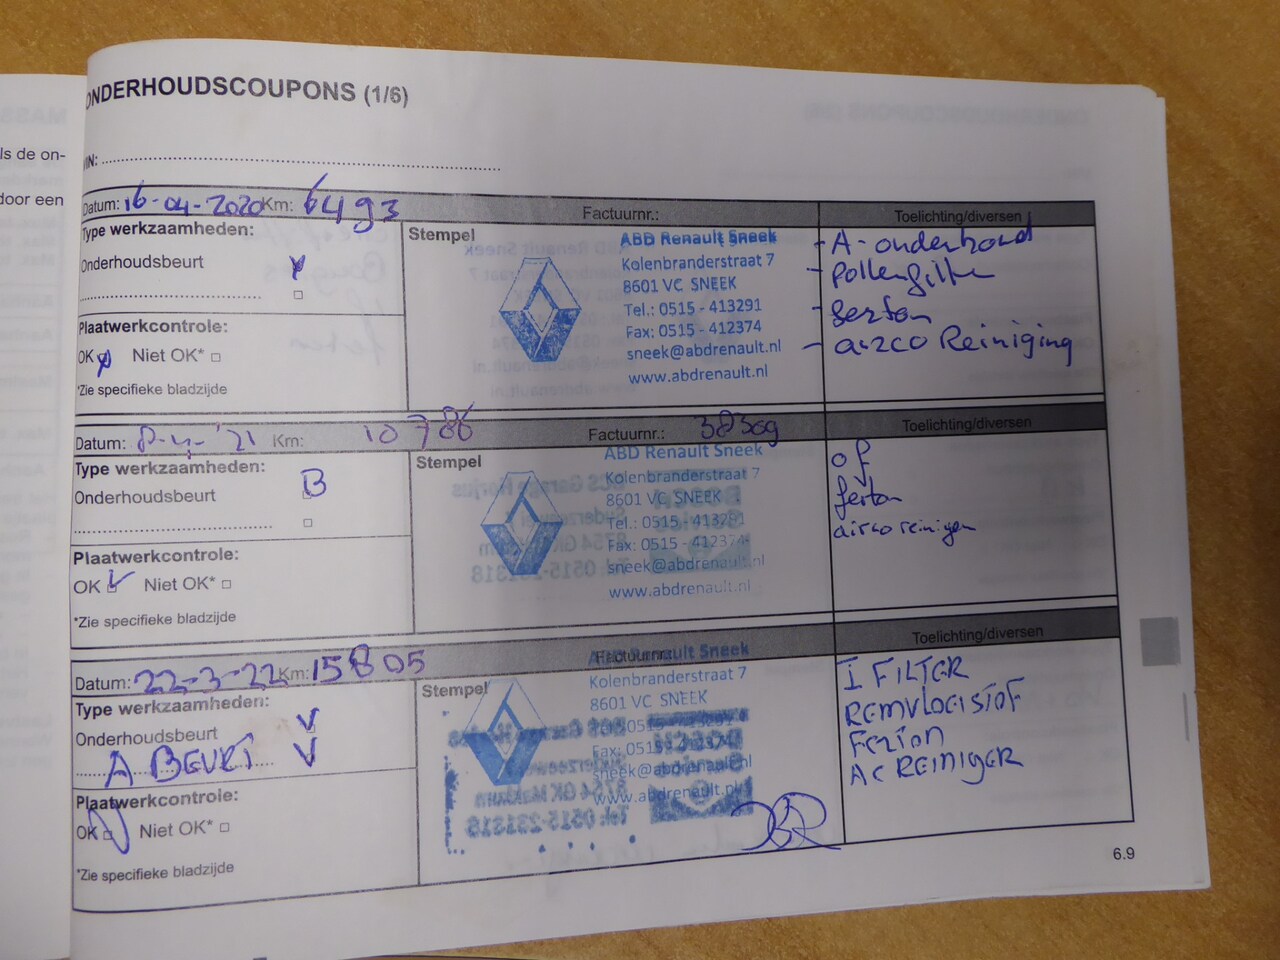 ls de on-
door een
ONDERHOUDSCOUPONS (1/6)
VIN:
Datum: 16-04-2020 Km: 6493 Factuurnr.: Toelichting/diversen
Type werkzaamheden:
Onderhoudsbeurt
Plaatwerkcontrole:
OK Niet OK*
*Zie specifieke bladzijde
Stempel
ABD Renault Sneek
Kolenbranderstraat 7
8601 VC SNEEK
Tel.: 0515 - 413291
Fax: 0515 - 412374
sneek@abdrenault.nl
www.abdrenault.nl
- A-onderhoud
- pollenfilter
- ferton
- airco Reiniging
Datum: 8-4-'21 Km: 10786 Factuurnr.: 38309 Toelichting/diversen
Type werkzaamheden:
Onderhoudsbeurt B
Plaatwerkcontrole:
OK Niet OK*
*Zie specifieke bladzijde
Stempel
ABD Renault Sneek
Kolenbranderstraat 7
8601 VC SNEEK
Tel.: 0515 - 413291
Fax: 0515 - 412374
sneek@abdrenault.nl
www.abdrenault.nl
of
ferton
airco reinigen
Datum: 22-3-22 Km: 15805 Factuurnr.: Toelichting/diversen
Type werkzaamheden:
Onderhoudsbeurt V
A BEURT V
Plaatwerkcontrole:
OK Niet OK*
*Zie specifieke bladzijde
Stempel
ABD Renault Sneek
Kolenbranderstraat 7
8601 VC SNEEK
Tel.: 0515 - 413291
Fax: 0515 - 412374
sneek@abdrenault.nl
www.abdrenault.nl
I FILTER
REMVLOEISTOF
FERTON
AC REINIGER
6.9